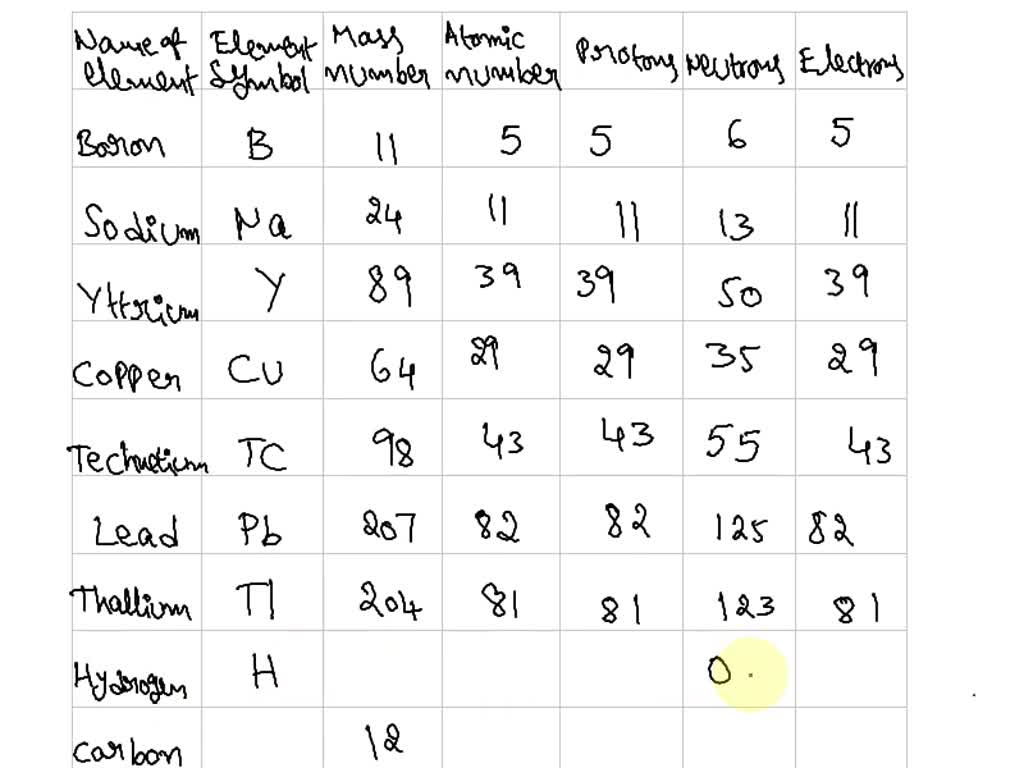 Name of element Element Symbol Mass number Atomic number Protons Neutrons Electrons
Boron B 11 5 5 6 5
Sodium Na 24 11 11 13 11
Yttrium Y 89 39 39 50 39
Copper CU 64 29 29 35 29
Technetium TC 98 43 43 55 43
Lead Pb 207 82 82 125 82
Thallium Tl 204 81 81 123 81
Hydrogen H 0
Carbon 12